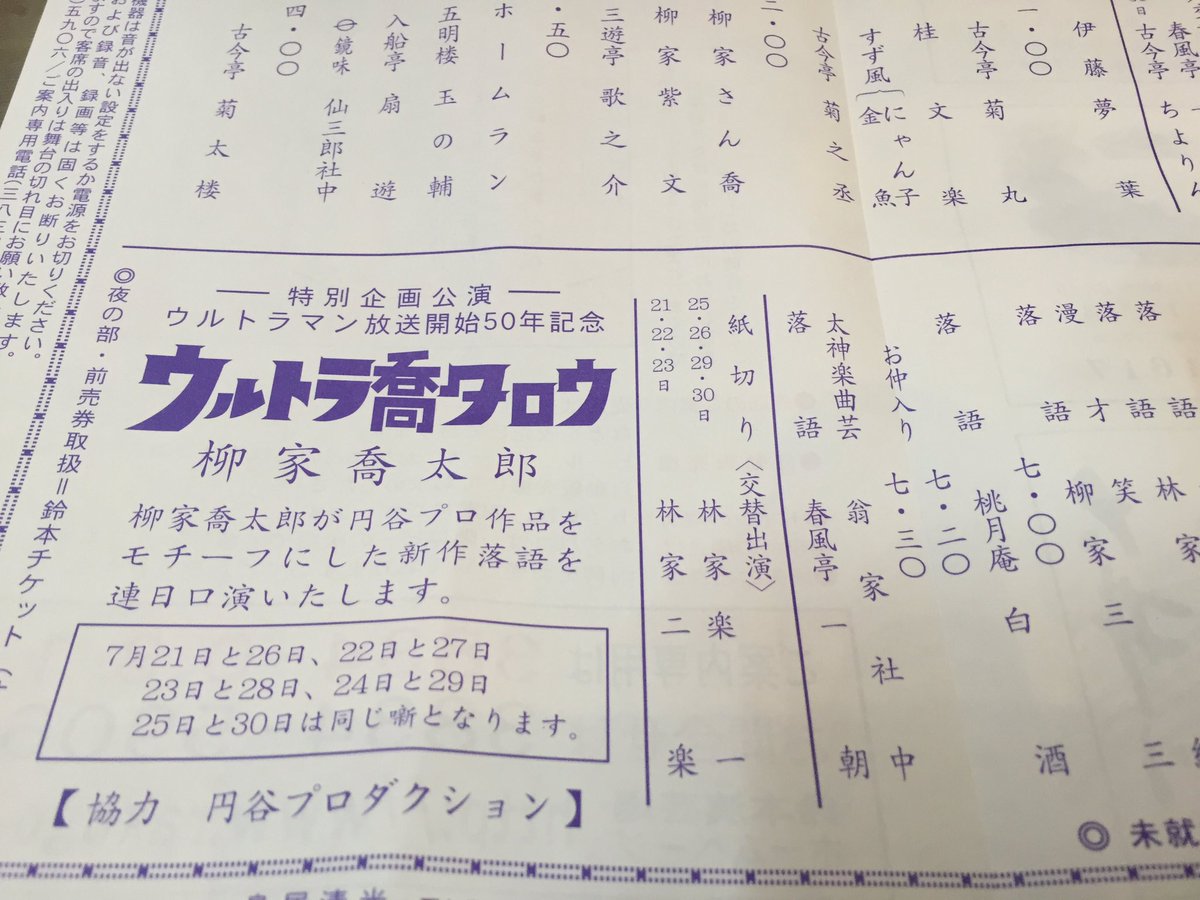 春風亭
古今亭 ちよりん
伊藤夢葉
一・〇〇
古今亭菊丸
桂文楽
すず風 にゃん子 金魚
古今亭菊之丞
二・〇〇
柳家さん喬
柳家紫文
三遊亭歌之介
・五〇
ホームラン
五明楼玉の輔
入船亭扇遊
鏡味仙三郎社中
四・〇〇
古今亭菊太楼
機器は音が出ない設定をするか電源をお切りください。
および録音、録画等は固くお断りいたします。
ますので客席の出入りは舞台の切れ目にお願い致します。
五九〇六/ご案内専用電話(三八三
落語
落語 林家
漫才 笑
落語 柳家三三
七・〇〇
落語 桃月庵白酒
七・二〇
お仲入り 七・三〇
太神楽曲芸 翁家社中
落語 春風亭一朝
紙切り〈交替出演〉
25・26・29・30日 林家楽一
21・22・23日 林家二楽
特別企画公演
ウルトラマン放送開始50年記念
ウルトラ喬タロウ
柳家喬太郎
柳家喬太郎が円谷プロ作品を
モチーフにした新作落語を
連日口演いたします。
7月21日と26日、22日と27日
23日と28日、24日と29日
25日と30日は同じ噺となります。
【協力 円谷プロダクション】
◎夜の部・前売券取扱=鈴本チケット
◎未就